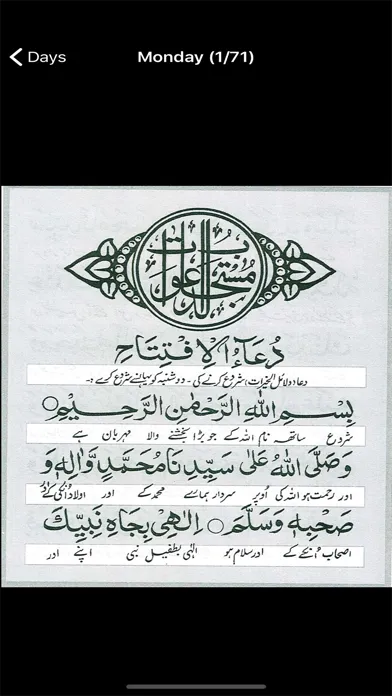 Days
Monday (1/71)
مستجاب الدعوات
دُعَآءُ الْاِفْتِتَاحِ
دعا دلائل الخیرات شروع کرنے کی - دوشنبہ کو یہاں سے شروع کرے :-
بِسْمِ اللّٰهِ الرَّحْمٰنِ الرَّحِيْمِ ○
شروع ساتھ نام اللہ کے جو بڑا بخشنے والا مہربان ہے
وَصَلَّى اللّٰهُ عَلٰى سَيِّدِنَا مُحَمَّدٍ وَّاٰلِهٖ وَ
اور رحمت ہو اللہ کی اُوپر سردار ہمارے محمد کے اور اولاد اُنکی کے اور
صَحْبِهٖ وَسَلَّمَ ○ اِلٰهِىْ بِجَاهِ نَبِيِّكَ
اصحاب اُنکے کے اور سلام ہو الٰہی بطفیل نبی اپنے اور